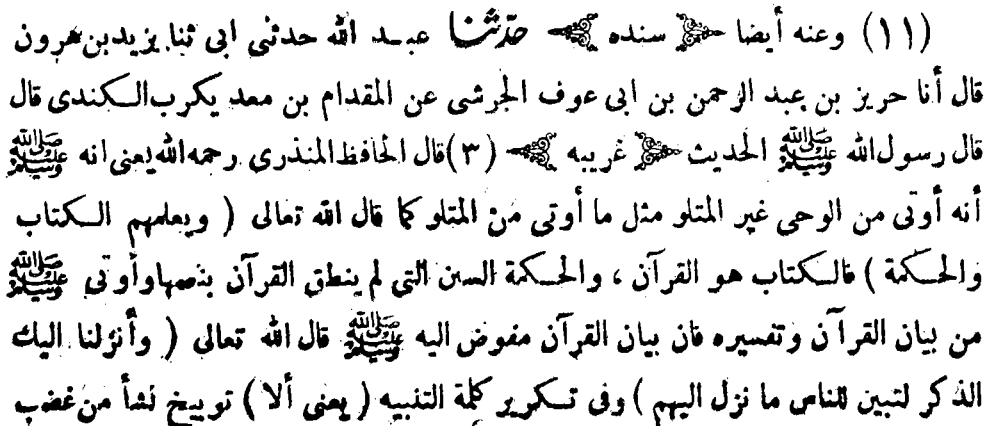 (١١) وعنه أيضا ﴿ سنده ﴾ حدثنا عبـد الله حدثنى ابى ثنا يزيد بن هرون
قال أنا حريز بن عبد الرحمن بن ابى عوف الجرشى عن المقدام بن معد يكرب الـكندى قال
قال رسول الله ﷺ الحديث ﴿ غريبه ﴾ (٣) قال الحافظ المنذرى رحمه الله يعنى انه ﷺ
أنه أوتى من الوحى غير المتلو مثل ما أوتى من المتلو كما قال الله تعالى ( ويعلمهم الـكتاب
والحـكمة ) فالـكتاب هو القرآن ، والحـكمة السنن التى لم ينطق القرآن بنصها وأوتى ﷺ
من بيان القرآن وتفسيره فان بيان القرآن مفوض اليه ﷺ قال الله تعالى ( وأنزلنا اليك
الذكر لتبين للناس ما نزل اليهم ) وفى تـكرير كلمة التنبيه ( يعنى ألا ) توبيخ نشأ من غضب